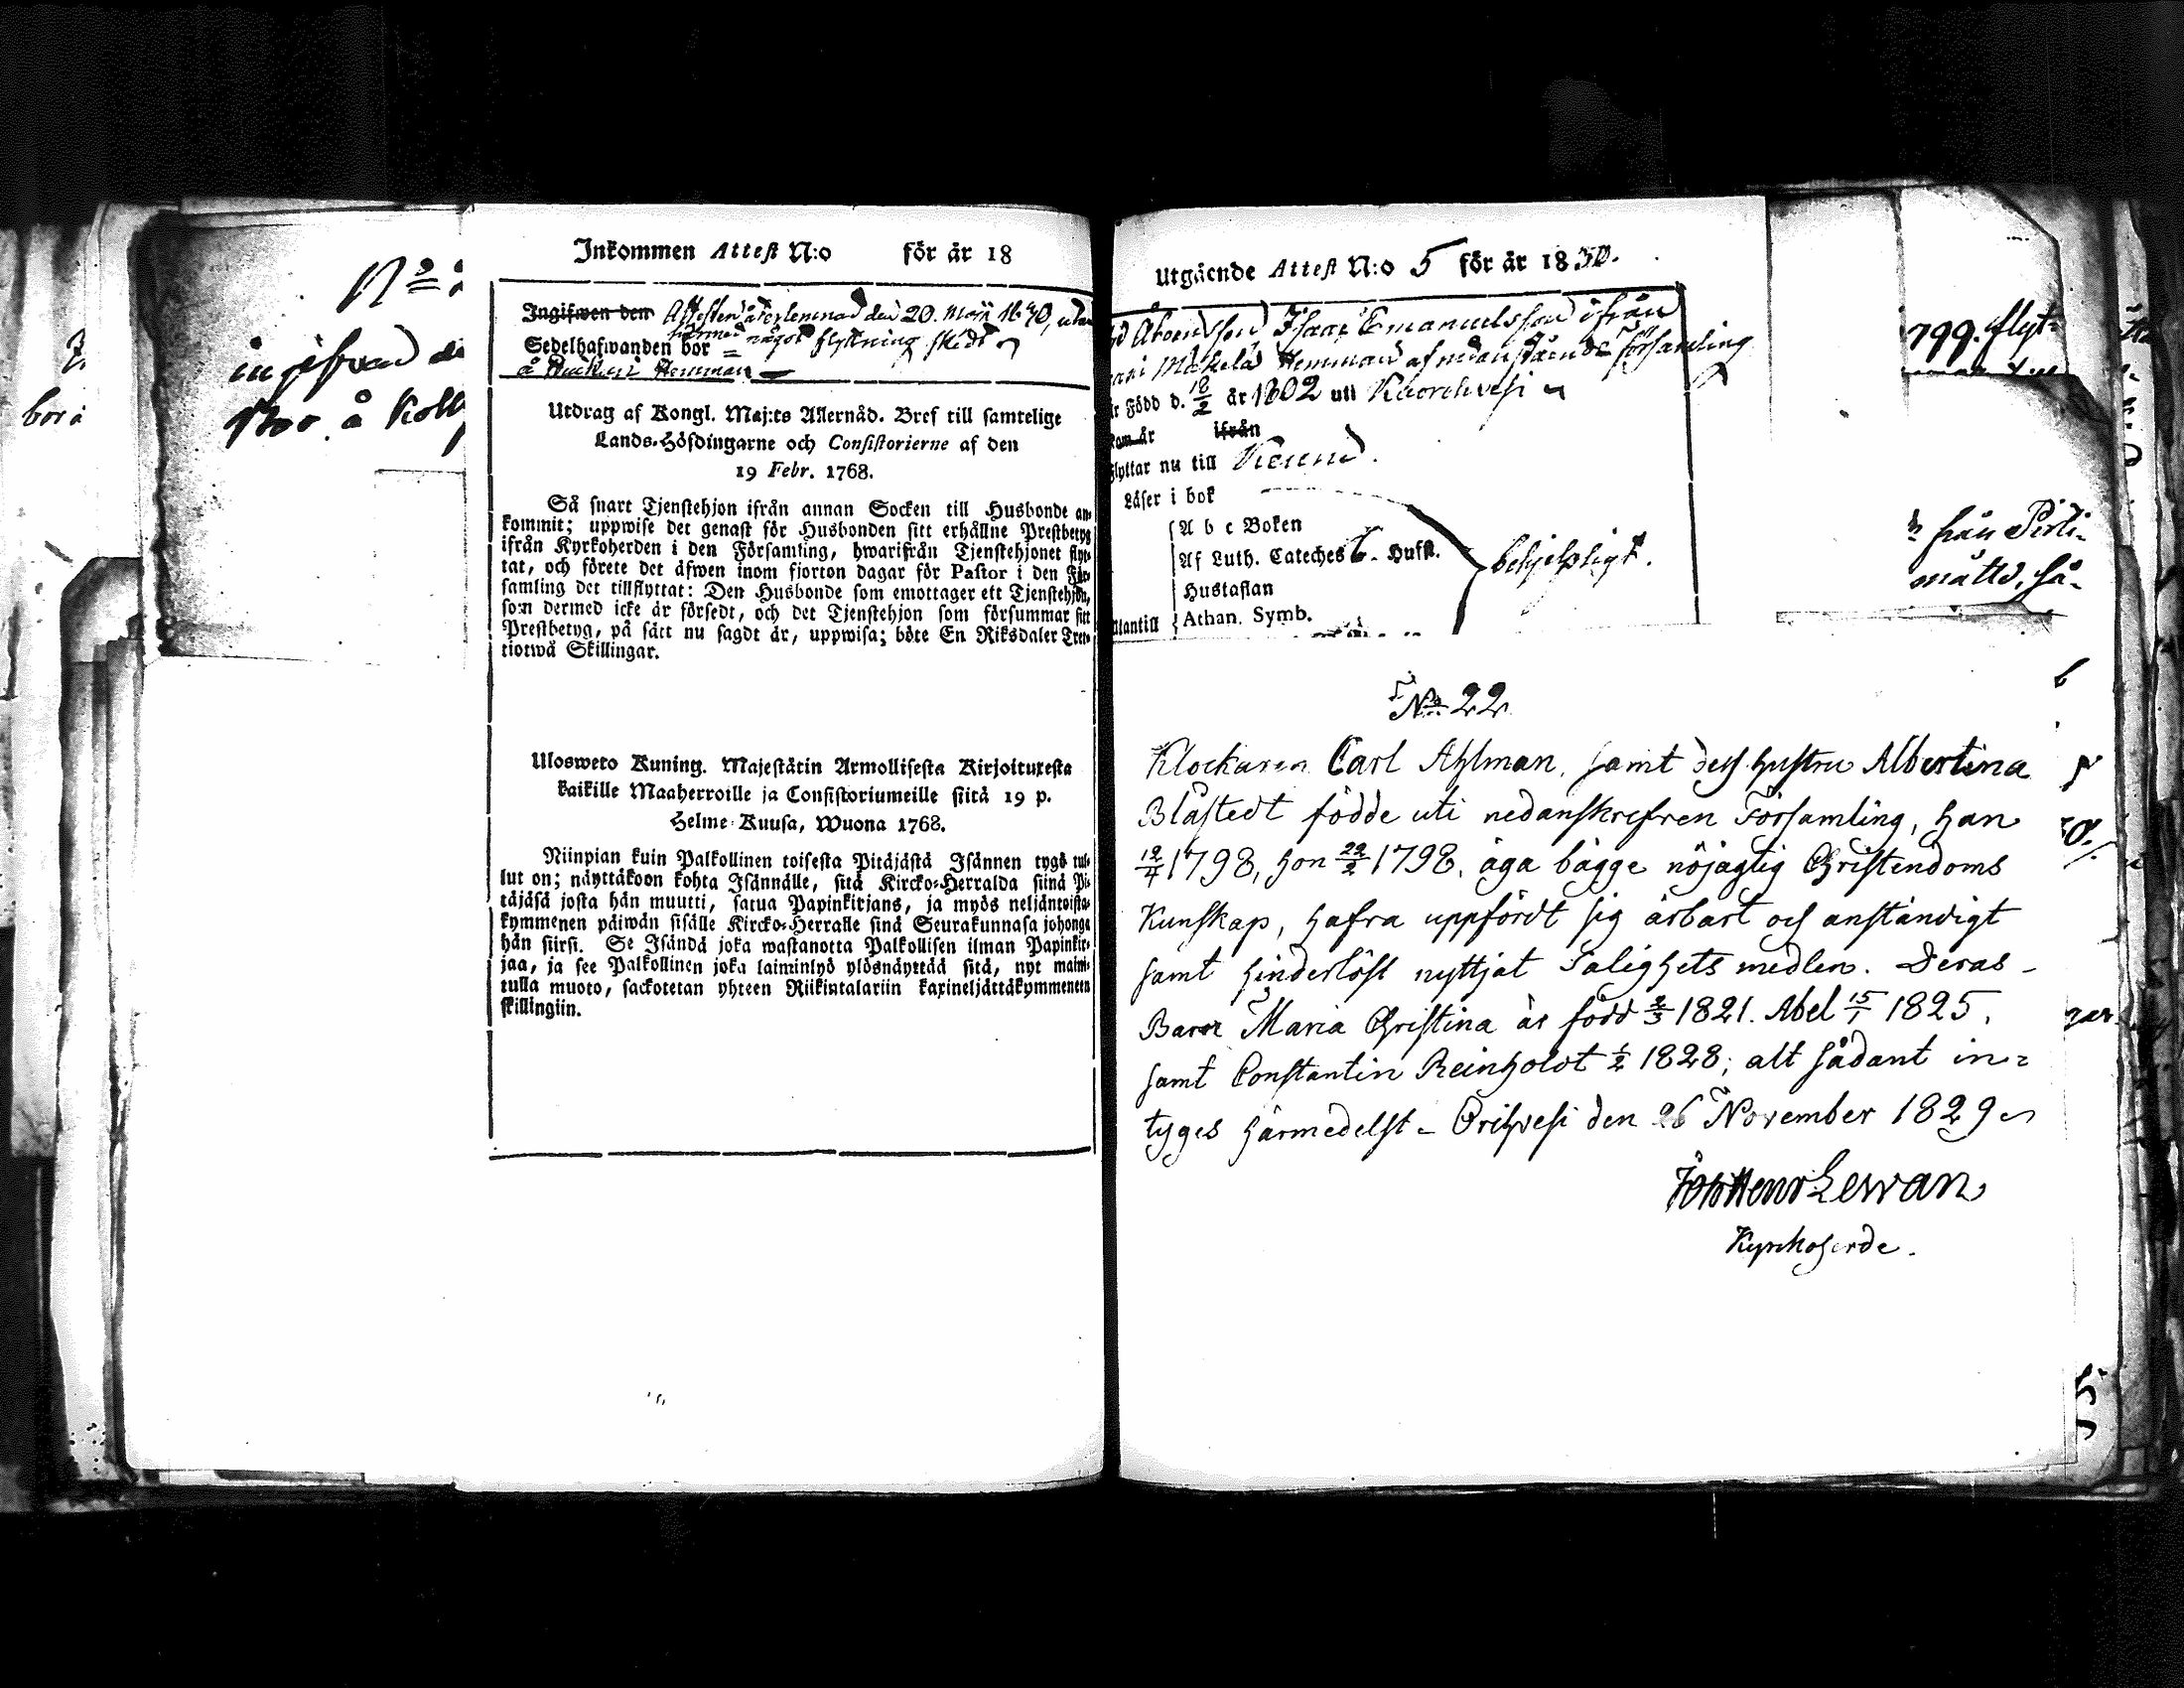 ingifven
bor å Koll
Inkommen Attest N:o för år 18
Ingifwen den Attesten återlemnad den 20. Maji 1830, utan
Sedelhafwanden bor härmed något flyttning skedt
å Hemman
Utdrag af Kongl. Maj:ts Allernåd. Bref till samtelige
Lands-Höfdingarne och Consistorierne af den
19 Febr. 1768.
Så snart Tjenstehjon ifrån annan Socken till Husbonde an-
kommit; uppwise det genast för Husbonden sitt erhållne Prestbetyg
ifrån Kyrkoherden i den Församling, hwarifrån Tjenstehjonet flyt-
tat, och förete det äfwen inom fjorton dagar för Pastor i den För-
samling det tillflyttat: Den Husbonde som emottager ett Tjenstehjon,
som dermed icke är försedt, och det Tjenstehjon som försummar sitt
Prestbetyg, på sätt nu sagdt är, uppwisa; böte En Riksdaler Tret-
tiotwå Skillingar.
Ulosweto Kuning. Majestätin Armollisesta Kirjoituxesta
kaikille Maaherroille ja Consistoriumeille siitä 19 p.
Helme-Kuusa, Wuona 1768.
Niinpian kuin Palkollinen toisesta Pitäjästä Isännen tygö tul-
lut on; näyttäköön kohta Isännälle, sitä Kircko-Herralda siinä Pi-
täjäsä josta hän muutti, satua Papinkirjans, ja myös neljäntoista-
kymmenen päiwän sisälle Kircko-Herralle sinä Seurakunnasa johonga
hän siirsi. Se Isändä joka wastanotta Palkollisen ilman Papinkir-
jaa, ja see Palkollinen joka laiminlyö ylösnäyttää sitä, nyt maini-
tulla muoto, sackotetan yhteen Riikintalariin kaxineljättäkymmeneen
skillingiin.
Utgående Attest N:o 5 för år 1830.
Isaac Emanuelsson ifrån
Mäkelä Hemman af nedanstående Församling
är Född d. 18/2 år 1802 uti Kuorehvesi
kom år ifrån
Flyttar nu till Keuru.
Läser i bok
A b c Boken
Af Luth. Cateches 6. Hufst.
Hustaflan
Athan. Symb.
behjelpligt.
utantill
799. flyt-
från Pirti-
måtto, så-
N:o 22
Klockaren Carl Ahlman, samt dess hustru Albertina
Blåstedt födde uti nedanskrefven Församling, han
12/4 1798, hon 22/2 1798. äga bägge nöjagtig Christendoms
Kunskap, hafva uppfördt sig ärbart och anständigt
samt hinderlöst nyttjat Salighets medlen. Deras
Barn Maria Christina är född 2/3 1821. Abel 15/1 1825,
samt Constantin Reinholdt 1/2 1828; alt sådant in=
tyges härmedelst - Orihvesi den 26 November 1829
Joh Henr Lewan
Kyrkoherde.